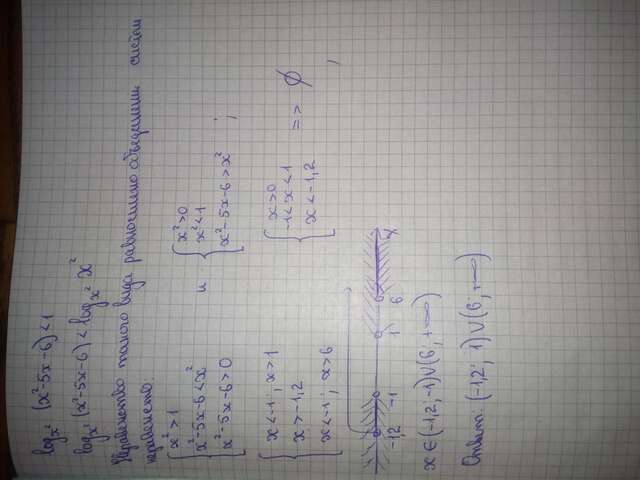 log_{x²} (x²-5x-6) < 1
log_{x²} (x²-5x-6) < log_{x²} x²
Неравенство такого вида равносильно объединению систем
неравенств:
{ x² > 1 ; x²-5x-6 < x² ; x²-5x-6 > 0 и { x² > 0 ; x² < 1 ; x²-5x-6 > x² ;
{ x < -1 ; x > 1 ; x > -1,2 ; x < -1 ; x > 6 { x > 0 ; -1 < x < 1 ; x < -1,2 => ∅ ,
-1,2 -1 1 6 x
x ∈ (-1,2; -1) ∪ (6; +∞)
Ответ: (-1,2; 1) ∪ (6; +∞)